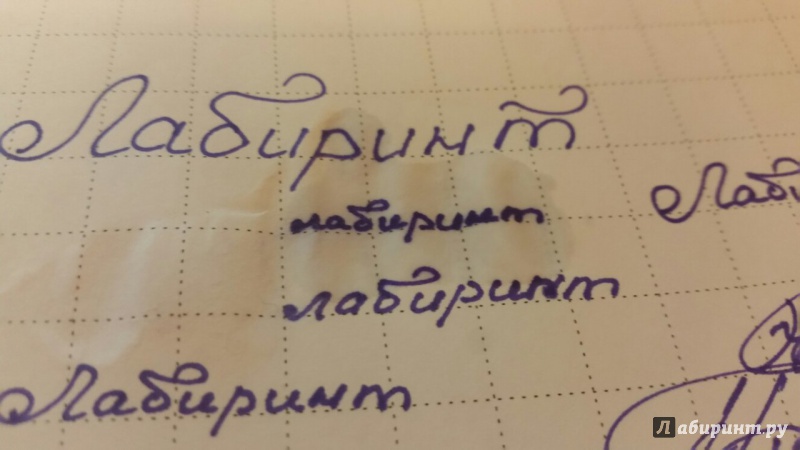 Лабиринт
лабиринт
Лаби
лабиринт
Лабиринт
Лабиринт.ру